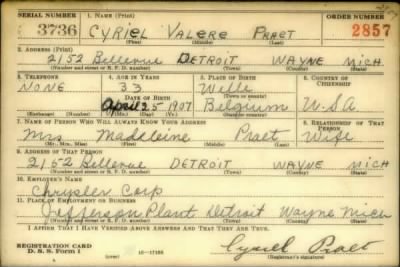 SERIAL NUMBER 1. NAME (Print) ORDER NUMBER
3736 CYRIEL VALERE PRAET 2857
(First) (Middle) (Last)
2. ADDRESS (Print)
2152 Bellevue DETROIT WAYNE MICH
(Number and street or R. F. D. number) (Town) (County) (State)
3. TELEPHONE 4. AGE IN YEARS 5. PLACE OF BIRTH 6. COUNTRY OF CITIZENSHIP
NONE 33 Wille
DATE OF BIRTH (Town or county)
April 25 1907 Belgium U.S.A
(Exchange) (Number) (Mo.) (Day) (Yr.) (State or country)
7. NAME OF PERSON WHO WILL ALWAYS KNOW YOUR ADDRESS 8. RELATIONSHIP OF THAT PERSON
Mrs Madeleine Praet Wife
(Mr., Mrs., Miss) (First) (Middle) (Last)
9. ADDRESS OF THAT PERSON
2152 Bellevue DETROIT WAYNE MICH
(Number and street or R. F. D. number) (Town) (County) (State)
10. EMPLOYER'S NAME
Chrysler Corp
11. PLACE OF EMPLOYMENT OR BUSINESS
Jefferson Plant Detroit Wayne Mich
(Number and street or R. F. D. number) (Town) (County) (State)
I AFFIRM THAT I HAVE VERIFIED ABOVE ANSWERS AND THAT THEY ARE TRUE.
REGISTRATION CARD
D. S. S. Form 1 (over) 16—17105 Cyriel Praet
(Registrant's signature)